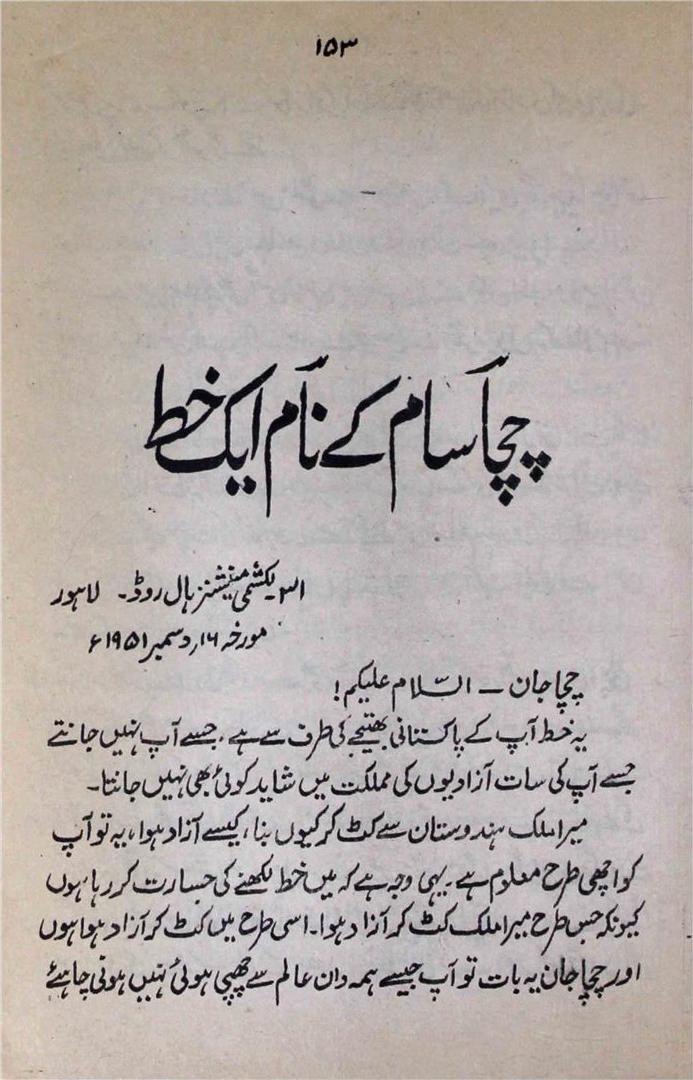 ۱۵۳
چچا سام کے نام ایک خط
۳۱ لکشمی مینشنز ہال روڈ۔ لاہور
مورخہ ۱۶؍ دسمبر ۱۹۵۱ء
چچا جان — السّلام علیکم!
یہ خط آپ کے پاکستانی بھتیجے کی طرف سے ہے، جسے آپ نہیں جانتے
جسے آپ کی سات آزادیوں کی مملکت میں شاید کوئی بھی نہیں جانتا۔
میرا ملک ہندوستان سے کٹ کر کیوں بنا، کیسے آزاد ہوا، یہ تو آپ
کو اچھی طرح معلوم ہے یہی وجہ ہے کہ میں خط لکھنے کی جسارت کر رہا ہوں
کیونکہ جس طرح میرا ملک کٹ کر آزاد ہوا۔ اسی طرح میں کٹ کر آزاد ہوا ہوں
اور چچا جان یہ بات تو آپ جیسے ہمہ دان عالم سے چھپی ہوئی نہیں ہونی چاہئے